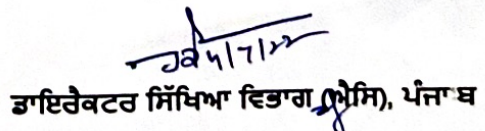 5/7/22
ਡਾਇਰੈਕਟਰ ਸਿੱਖਿਆ ਵਿਭਾਗ (ਐਸਿ), ਪੰਜਾਬ